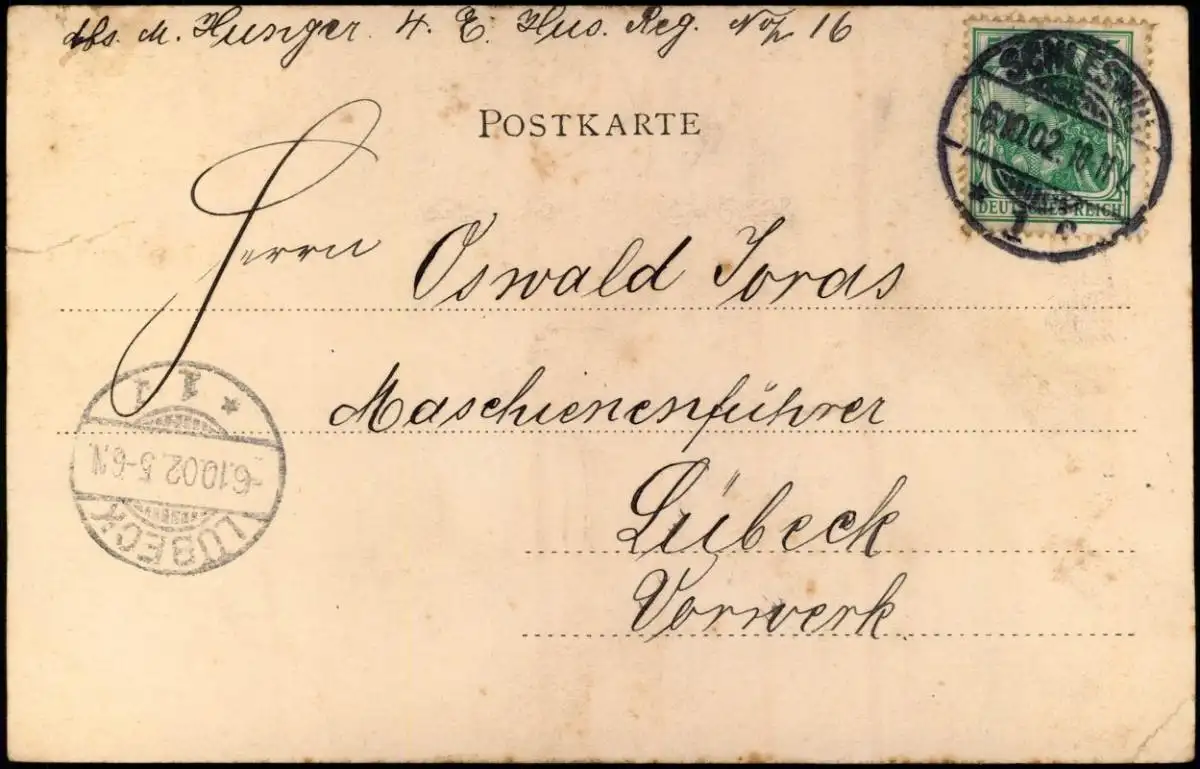 Abs. M. Hunger. 4. E. Hus. Reg. No 16
POSTKARTE
SCHLESWIG
-6.10.02. 10-11V.
* 1 c
DEUTSCHES REICH
Herrn Oswald Joras
Maschienenführer
Lübeck
Vorwerk
LÜBECK
-6.10.02.5-6.N
* 1 1